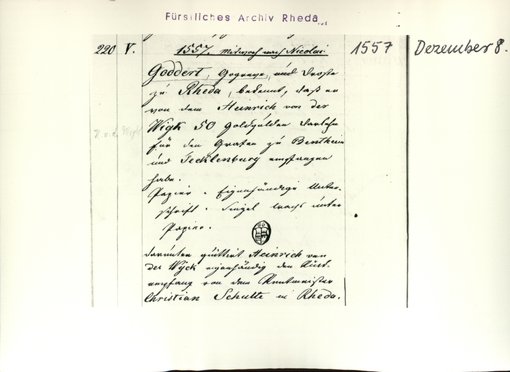 Fürstliches Archiv Rheda
220 V. 1557 Mittwoch nach Nicolai. 1557 Dezember 8.
Goddert, Gogreve, und Droste
zu Rheda, bekennt, daß er
von dem Heinrich von der
Wyk 50 Goldgülden Darlehn
für den Grafen zu Bentheim
und Tecklenburg empfangen
habe.
Papier. Eigenhändige Unter-
schrift. Siegel Wachs unter
Papier.
darunter quittirt Heinrich von
der Wyck eigenhändig den
empfang von dem Rentmeister
Christian Schulte in Rheda.